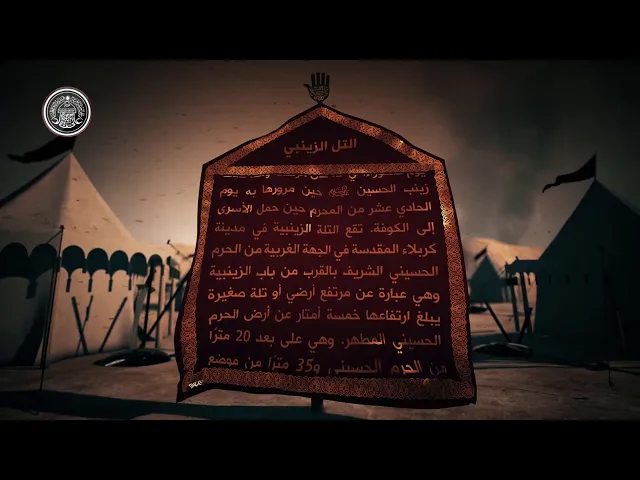 التل الزينبي
زينب الحسين ﷺ حين مرورها به يوم
الحادي عشر من المحرم حين حمل الأسرى
إلى الكوفة. تقع التلة الزينبية في مدينة
كربلاء المقدسة في الجهة الغربية من الحرم
الحسيني الشريف بالقرب من باب الزينبية
وهي عبارة عن مرتفع أرضي أو تلة صغيرة
يبلغ ارتفاعها خمسة أمتار عن أرض الحرم
الحسيني المطهر. وهي على بعد 20 مترًا
من الحرم الحسيني و35 مترًا من موضع